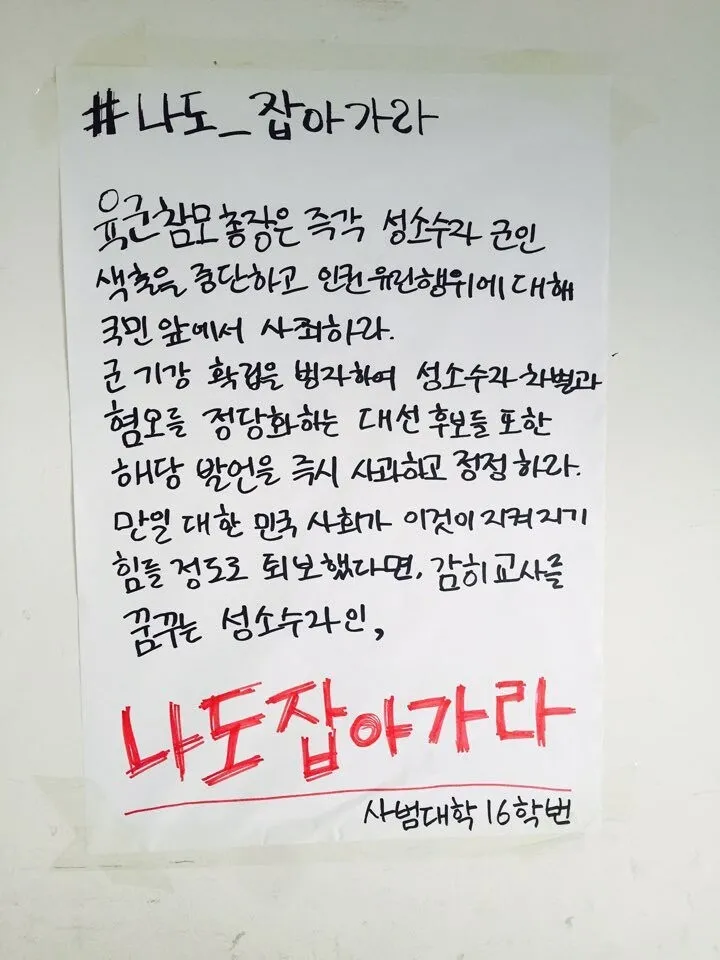 #나도_잡아가라
육군참모총장은 즉각 성소수자 군인
색출을 중단하고 인권유린행위에 대해
국민 앞에서 사죄하라.
군 기강 확립을 빙자하여 성소수자 차별과
혐오를 정당화하는 대선 후보들 또한
해당 발언을 즉시 사과하고 정정하라.
만일 대한 민국 사회가 이것이 지켜지기
힘들 정도로 퇴보했다면, 감히 교사를
꿈꾸는 성소수자인,
나도잡아가라
사범대학 16학번